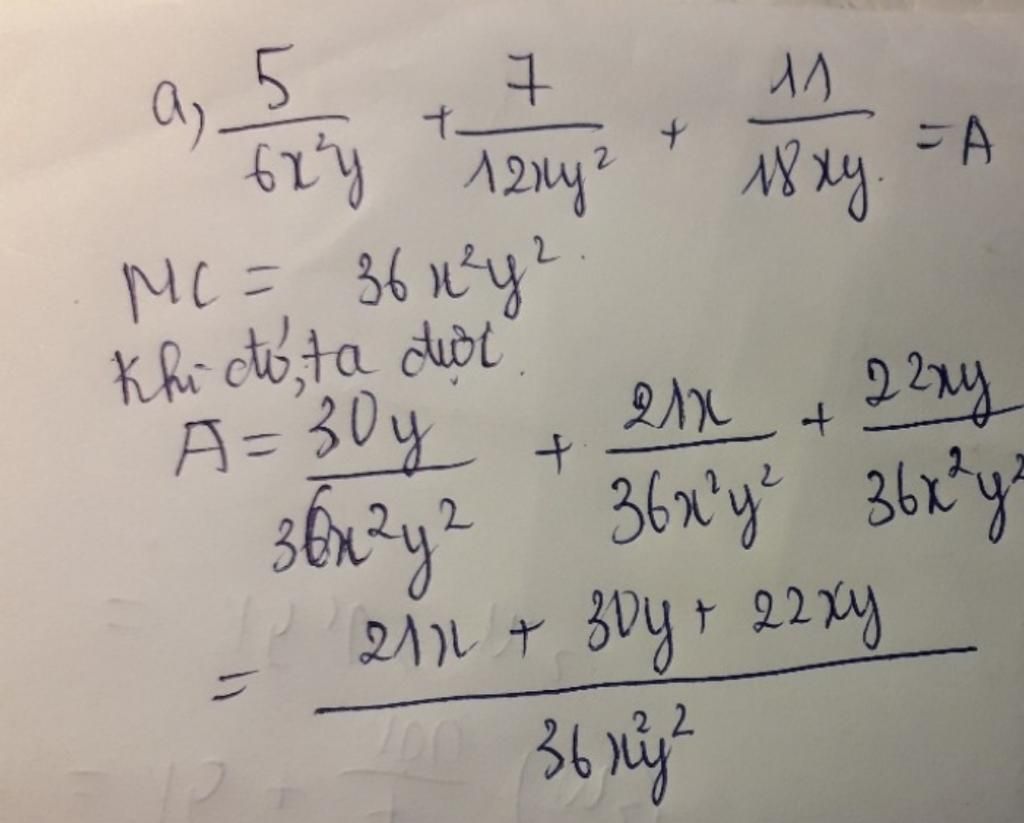 a, 5/6x²y + 7/12xy² + 11/18xy. = A
MC = 36x²y².
Khi đó, ta được.
A = 30y/36x²y² + 21x/36x²y² + 22xy/36x²y²
= 21x + 30y + 22xy/36x²y²